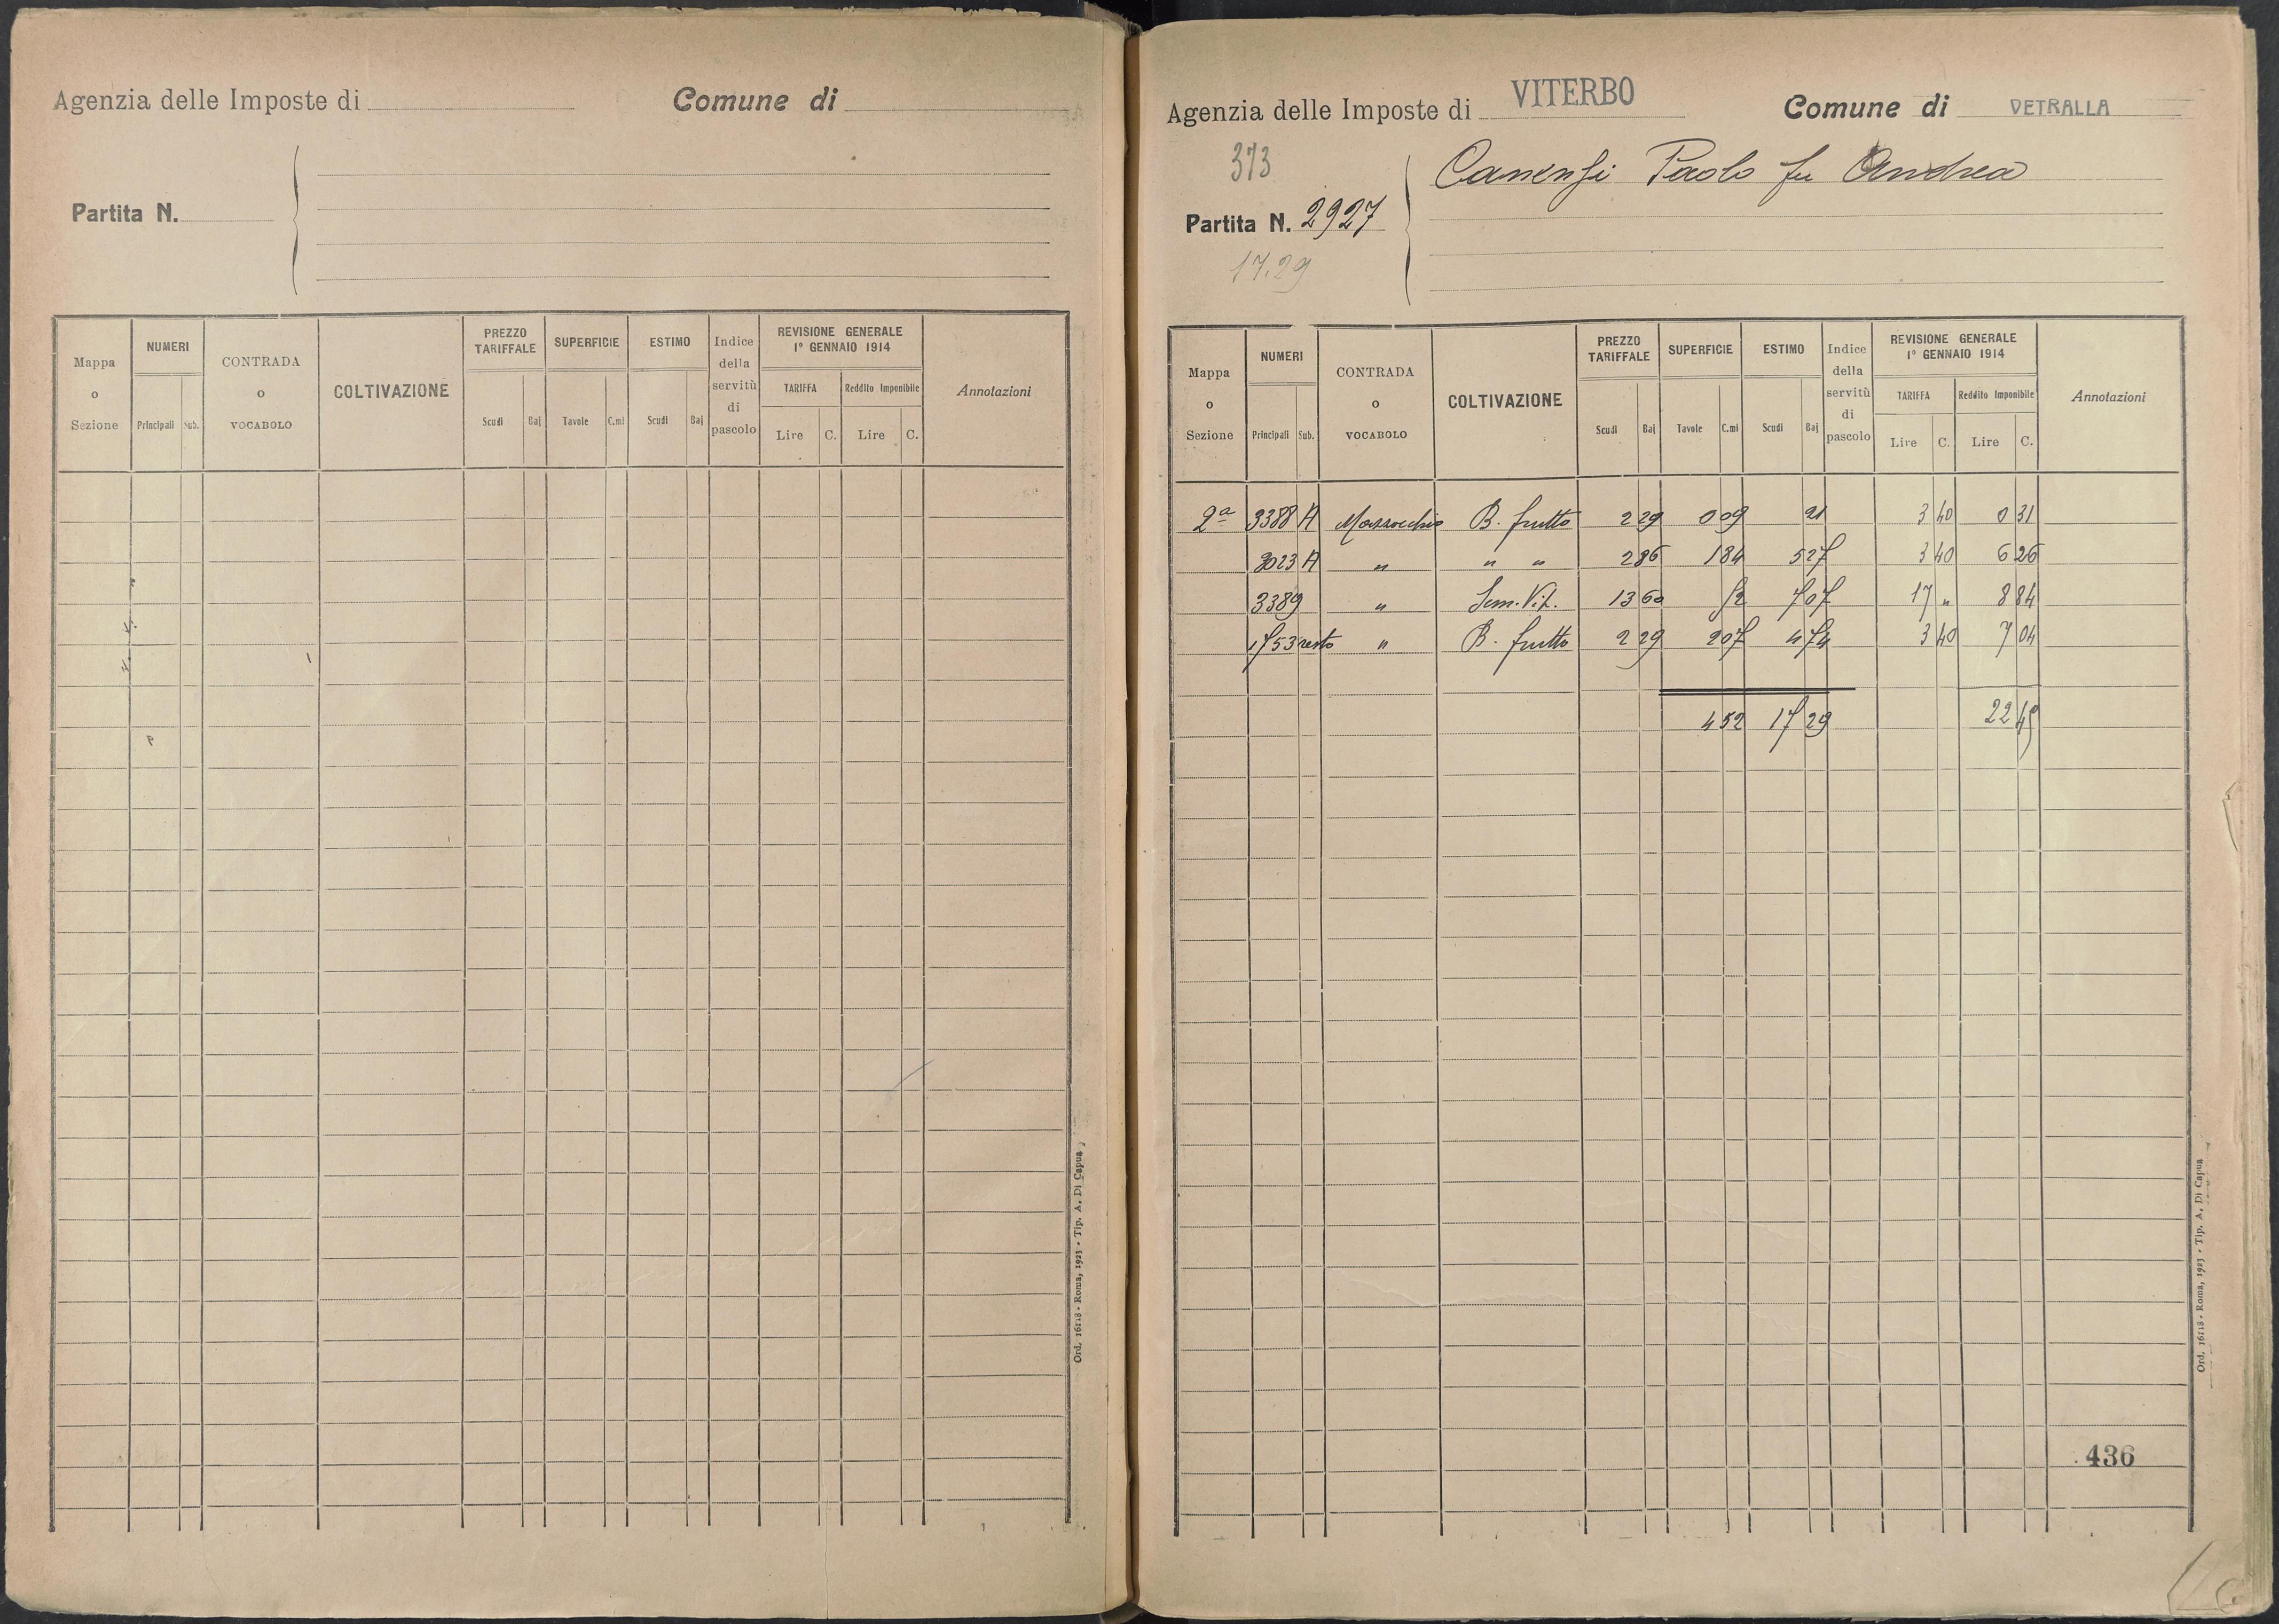 Agenzia delle Imposte di
Comune di
Partita N.
Mappa o Sezione
NUMERI
Principali
Sub.
CONTRADA o VOCABOLO
COLTIVAZIONE
PREZZO TARIFFALE
Scudi
Baj
SUPERFICIE
Tavole
C.mi
ESTIMO
Scudi
Baj
Indice della servitù di pascolo
REVISIONE GENERALE
1° GENNAIO 1914
TARIFFA
Lire
C.
Reddito Imponibile
Lire
C.
Annotazioni
Ord. 16118 - Roma, 1923 - Tip. A. Di Capua
Agenzia delle Imposte di VITERBO
Comune di VETRALLA
373
Canensi Paolo fu Andrea
Partita N. 2927
17.29
Mappa o Sezione
NUMERI
Principali
Sub.
CONTRADA o VOCABOLO
COLTIVAZIONE
PREZZO TARIFFALE
Scudi
Baj
SUPERFICIE
Tavole
C.mi
ESTIMO
Scudi
Baj
Indice della servitù di pascolo
REVISIONE GENERALE
1° GENNAIO 1914
TARIFFA
Lire
C.
Reddito Imponibile
Lire
C.
Annotazioni
2a 3388 A Mazzocchio B. frutto 2 29 0 09 21 3 40 0 31
3023 A " " " 2 86 1 84 5 27 3 40 6 26
3389 " Sem. Vit. 13 60 52 7 07 17 " 8 84
1753 resto " B. frutto 2 29 2 07 4 74 3 40 7 04
4 52 17 29 22 45
436
Ord. 16118 - Roma, 1923 - Tip. A. Di Capua